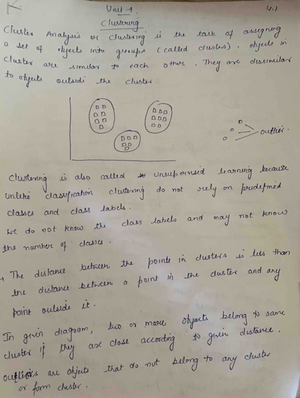 Unit 4
4.1
Clustering
Cluster Analysis or Clustering is the task of assigning
a set of objects into groups (called clusters). objects in
cluster are similar to each other. They are dissimilar
to objects outside the cluster
outlier.
Clustering is also called unsupervised learning because
unlike classification clustering do not rely on predefined
classes and class labels.
We do not know the class labels and may not know
the number of classes.
The distance between the points in clusters is less than
the distance between a point in the cluster and any
point outside it.
In given diagram, two or more objects belong to same
cluster if they are close according to given distance.
outliers are objects that do not belong to any cluster
or form cluster.